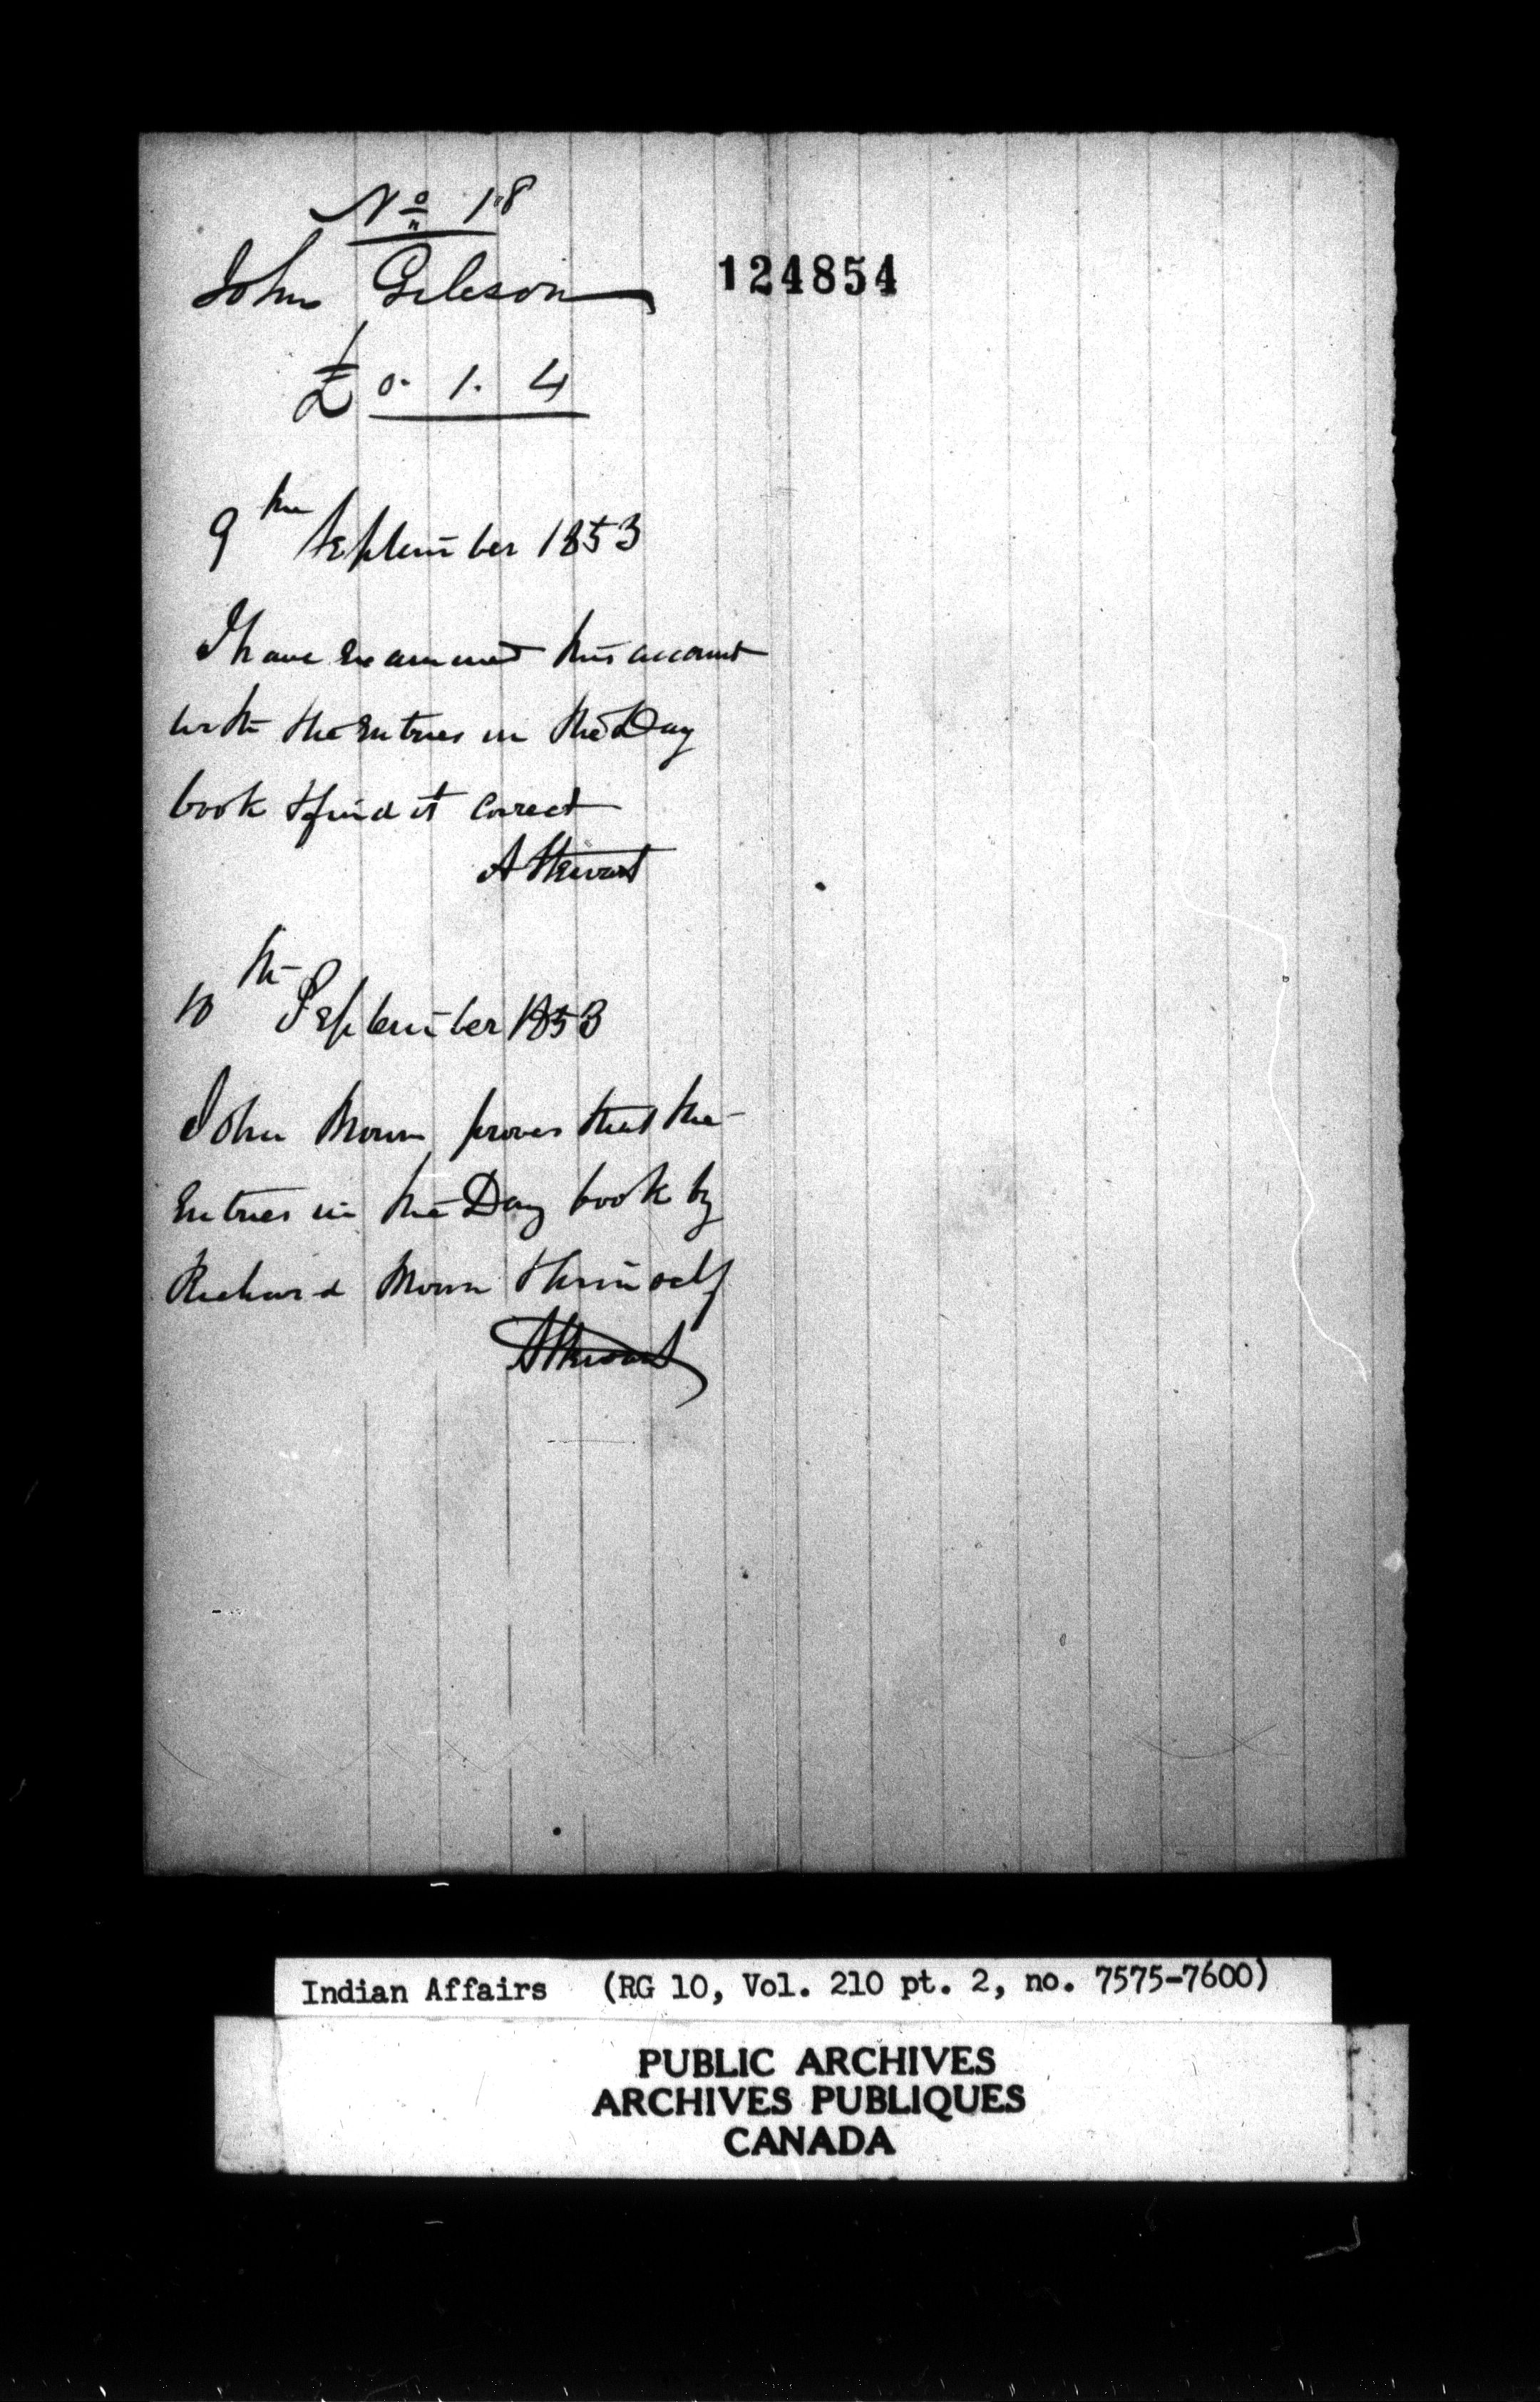 No 18
John Gibson
124854
£ 0. 1. 4
9th September 1853
I have examined this account
with the Entries in the Day
book & find it Correct
A Stewart
10th September 1853
John proves that the
Entries in the Day book by
Richard & himself
A Stewart
Indian Affairs (RG 10, Vol. 210 pt. 2, no. 7575-7600)
PUBLIC ARCHIVES
ARCHIVES PUBLIQUES
CANADA